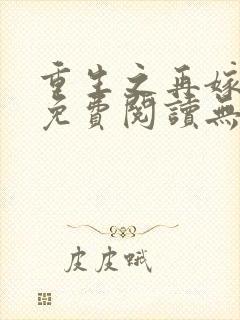 重生之再嫁
免費閱讀無
皮皮哦